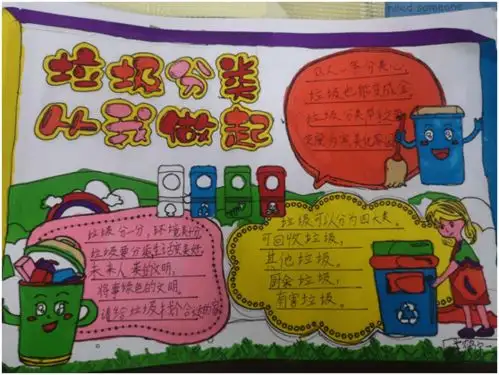 need someone
垃圾分类
从我做起
人人一条分类心,
垃圾也能变成金
垃圾分类
垃圾分一分,环境美十分
垃圾要分类生活变美好,
未来人类的文明,
将事绿色的文明
请给垃圾找个合适的家
垃圾可以分为四大类。
可回收垃圾,
其他垃圾。
厨余垃圾,
有害垃圾。